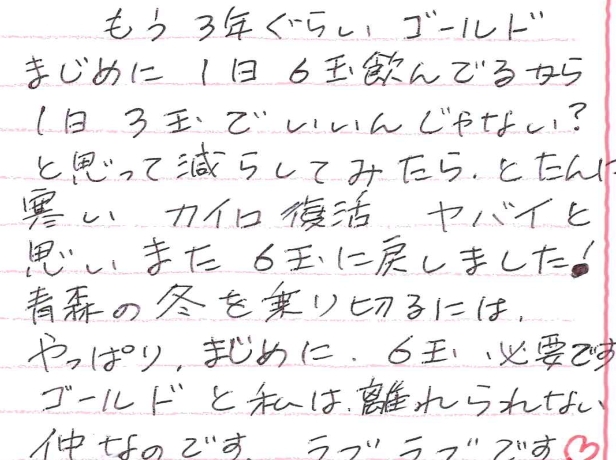 もう 3年ぐらい ゴールド
まじめに 1日 6玉飲んでるから
1日 3玉でいいんじゃない?
と思って減らしてみたら、とたんに
寒い カイロ復活 ヤバイと
思いまた 6玉に戻しました!
青森の冬を乗り切るには、
やっぱり、まじめに、6玉、必要です
ゴールドと私は、離れられない
仲なのです。 ラブラブです♡